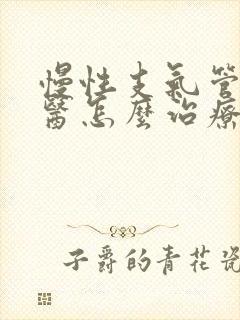 慢性支气管
醫怎麼治療
子爵的青花瓷